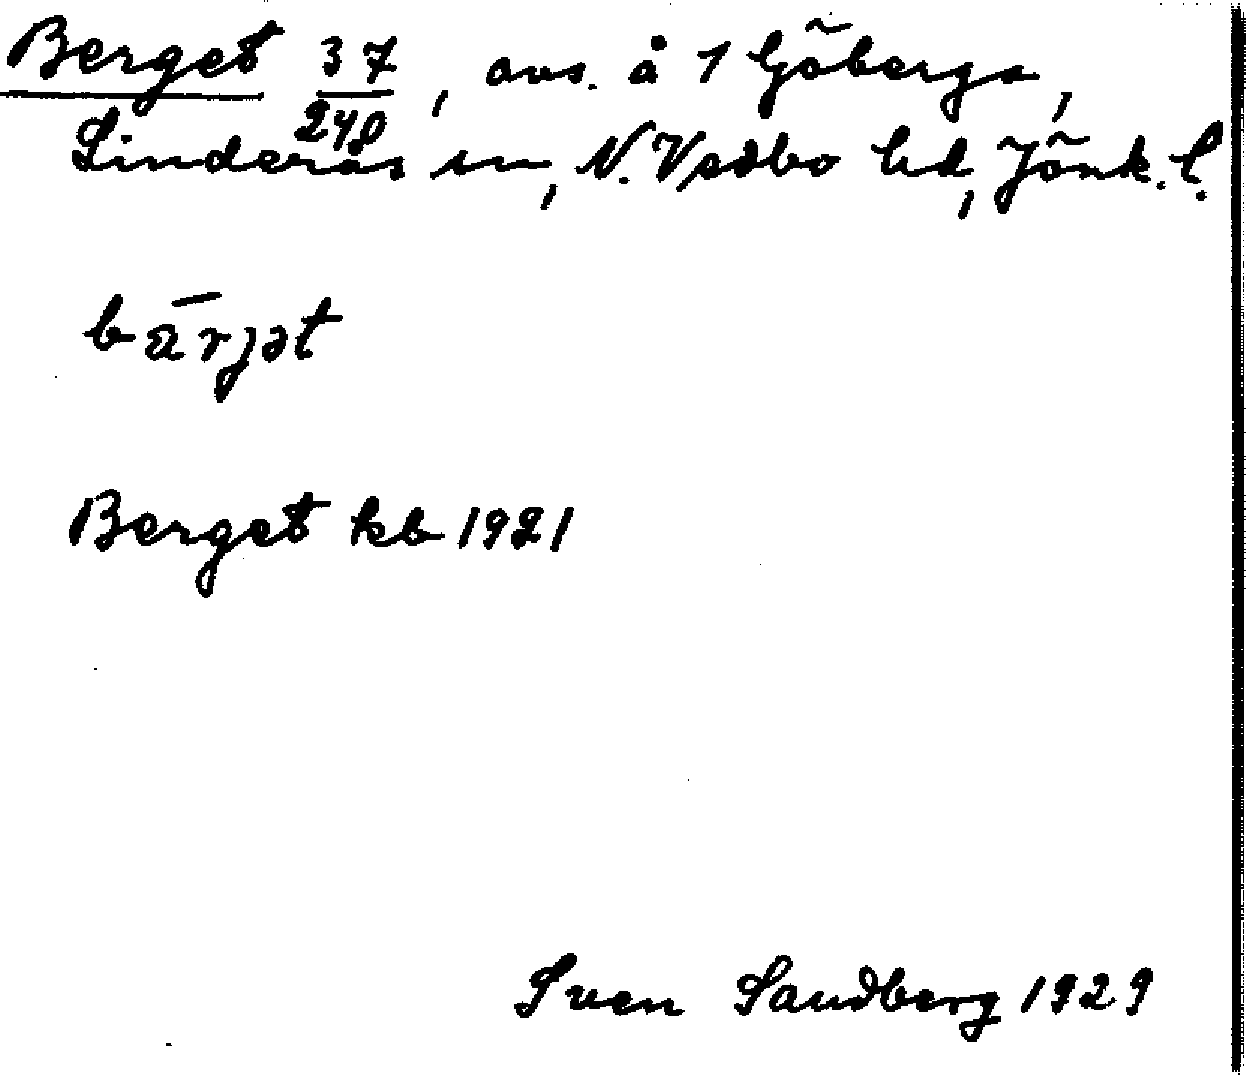 Berget 37/240, avs. å 1 Göberga,
Linderås sn, N. Vedbo hd, Jönk. l.
bǟrjət
Berget kb 1921
Sven Sandberg 1929